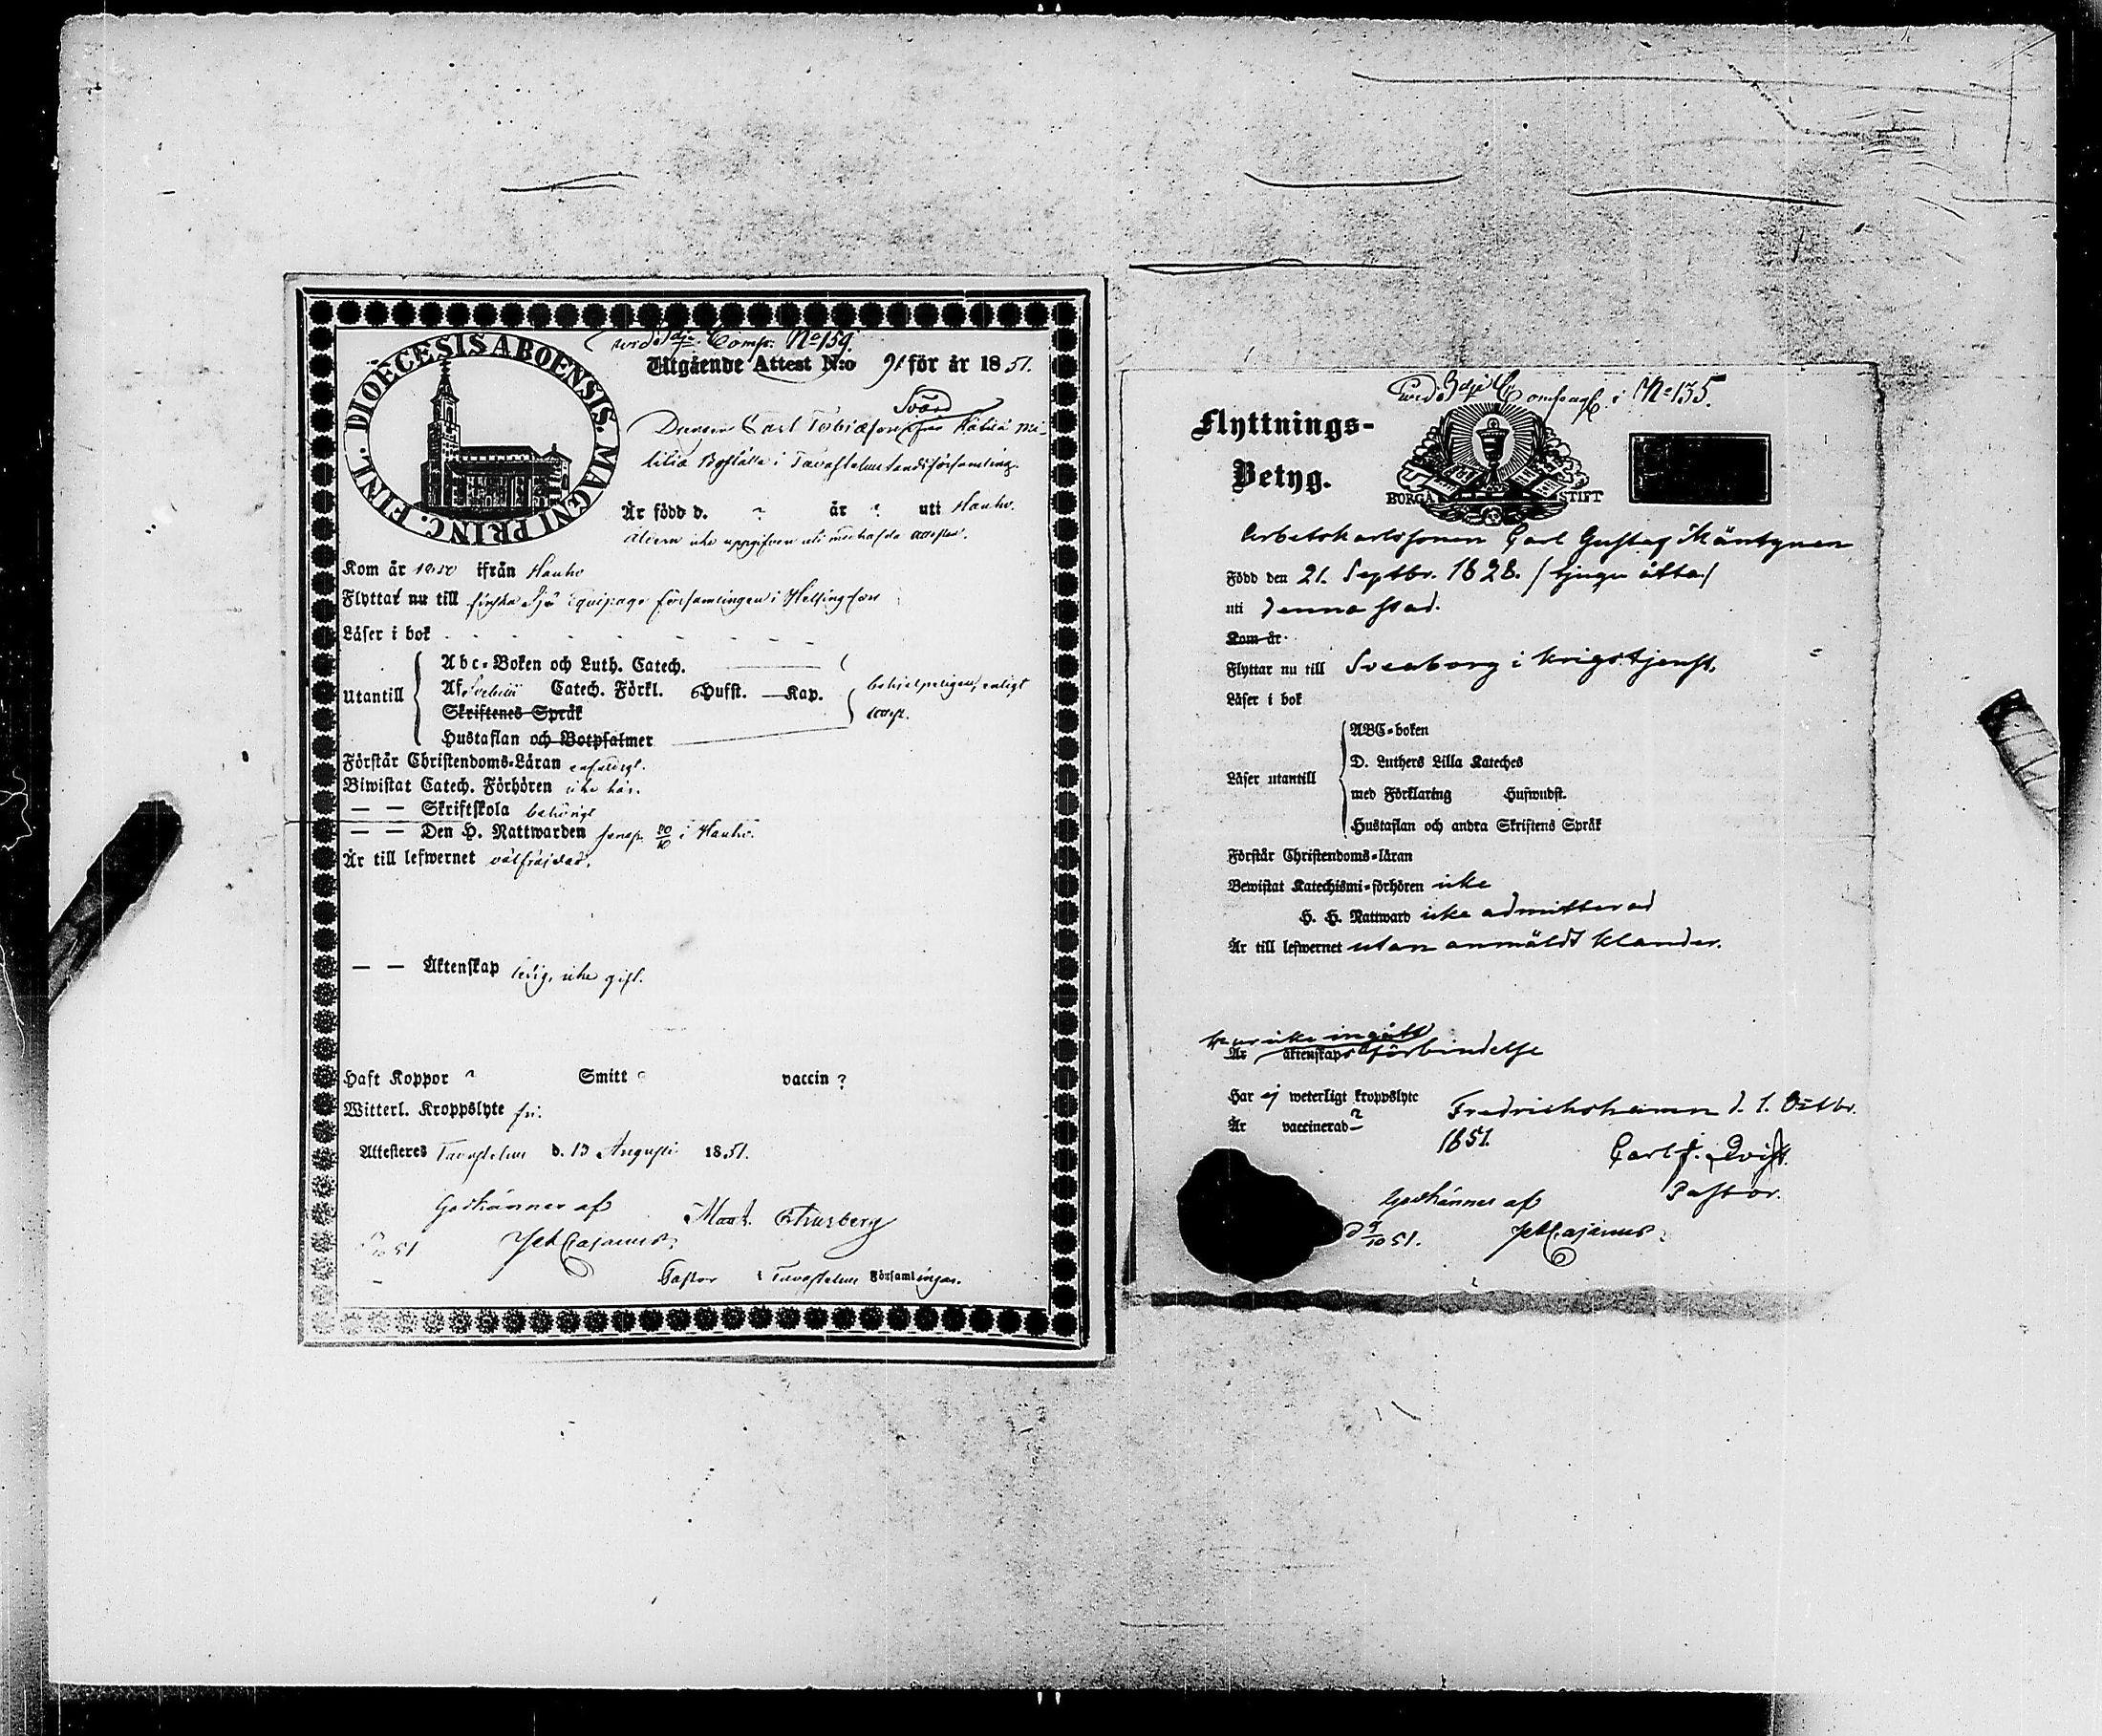 wid 4de Comp. No 159.
Utgående Attest N:o 91 för år 1851.
DIOECESIS ABOENSIS. MAGNI PRINC. FINL.
Svärd
Drengen Carl Tobiasson från Kätilä Mi-
litiæ Boställe i Tavastehus landsförsamling.
Är född d. ? år ? uti Hauho.
åldern icke uppgifven uti medhafde attester.
Kom år 1850 ifrån Hauho
Flyttat nu till finska Sjö Equipage församlingen i Helsingfors
Läser i bok
Utantill
Abc-Boken och Luth. Catech.
Af Svebilii Catech. Förkl. 6 Hufst. — Kap.
behjelpeligen, enligt
attest.
Skriftenes Språk
Hustaflan och Botpsalmer
Förstår Christendoms-Läran enfaldigt.
Biwistat Catech. Förhören icke här.
— — Skriftskola behörigt
— — Den H. Nattwarden senap. 20/10 i Hauho.
Är till lefwernet välfräjdad.
— — Äktenskap ledig, icke gift.
Haft Koppor ? Smitt ? vaccin ?
Witterl. Kroppslyte fri.
Attesteres Tavastehus d. 13 Augusti 1851.
Godkännes af
Pastor i Tavastehus Församlingar.
wid 3dje Compagt. i No 135.
Flyttnings-
Betyg.
BORGÅ STIFT
Arbetskarlssonen Carl Gustaf Mäntynen
Född den 21. Septbr. 1828. / tjugu åtta /
uti denna stad.
Kom år
Flyttar nu till Sveaborg i krigstjenst.
Läser i bok
Läser utantill
ABC-boken
D. Luthers Lilla Kateches
med Förklaring Hufwudst.
Hustaflan och andra Skriftens Språk
Förstår Christendoms-läran
Bewistat Katechismi-förhören icke
H. H. Nattward icke admitterad
Är till lefwernet utan anmäldt klander.
har icke ingått
Är äktenskaps förbindelse
Har ej weterligt kroppslyte
Är vaccinerad ?
Fredrichshamn d. 1. Octbr.
1851.
Carl J. Qvist.
Pastor.
Godkännes af
d 9/10 51.